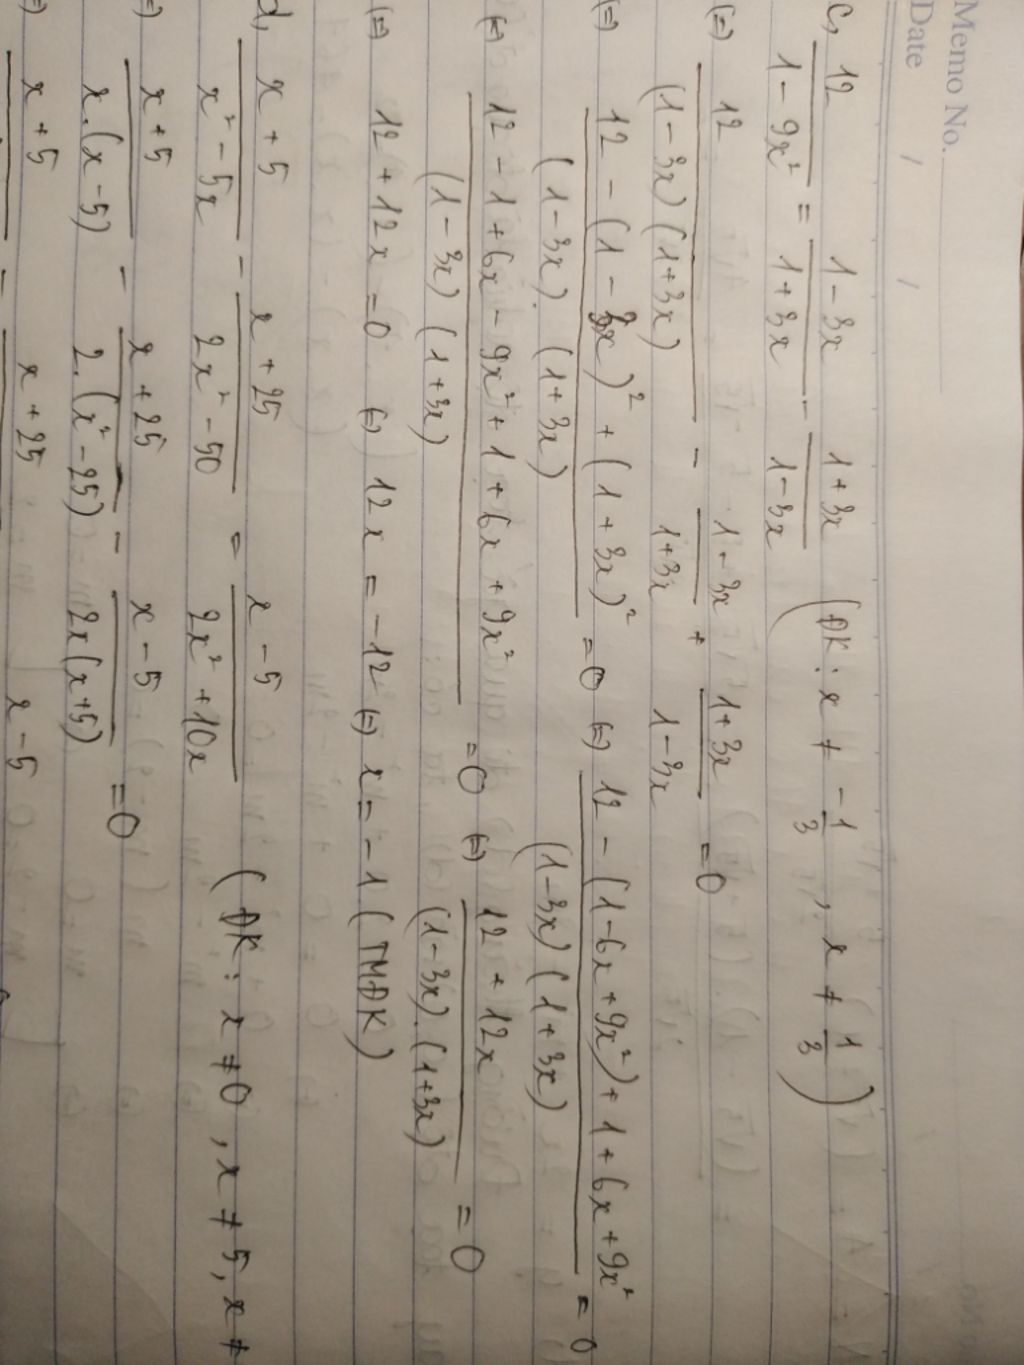 Memo No.
Date / /
c, 12/(1 - 9x²) = (1 - 3x)/(1 + 3x) - (1 + 3x)/(1 - 3x) (ĐK: x ≠ -1/3, x ≠ 1/3)
(=) 12/((1 - 3x)(1 + 3x)) - (1 - 3x)/(1 + 3x) + (1 + 3x)/(1 - 3x) = 0
(=) (12 - (1 - 3x)² + (1 + 3x)²)/((1 - 3x).(1 + 3x)) = 0 (=) (12 - (1 - 6x + 9x²) + 1 + 6x + 9x²)/((1 - 3x)(1 + 3x)) = 0
(=) (12 - 1 + 6x - 9x² + 1 + 6x + 9x²)/((1 - 3x)(1 + 3x)) = 0 (=) (12 + 12x)/((1 - 3x).(1 + 3x)) = 0
(=) 12 + 12x = 0 (=) 12x = -12 (=) x = -1 (TMĐK)
d, (x + 5)/(x² - 5x) - (x + 25)/(2x² - 50) = (x - 5)/(2x² + 10x) (ĐK: x ≠ 0, x ≠ 5, x ≠
=) (x + 5)/(x.(x - 5)) - (x + 25)/(2.(x² - 25)) - (x - 5)/(2x(x + 5)) = 0
=) x + 5 - x + 25 x - 5